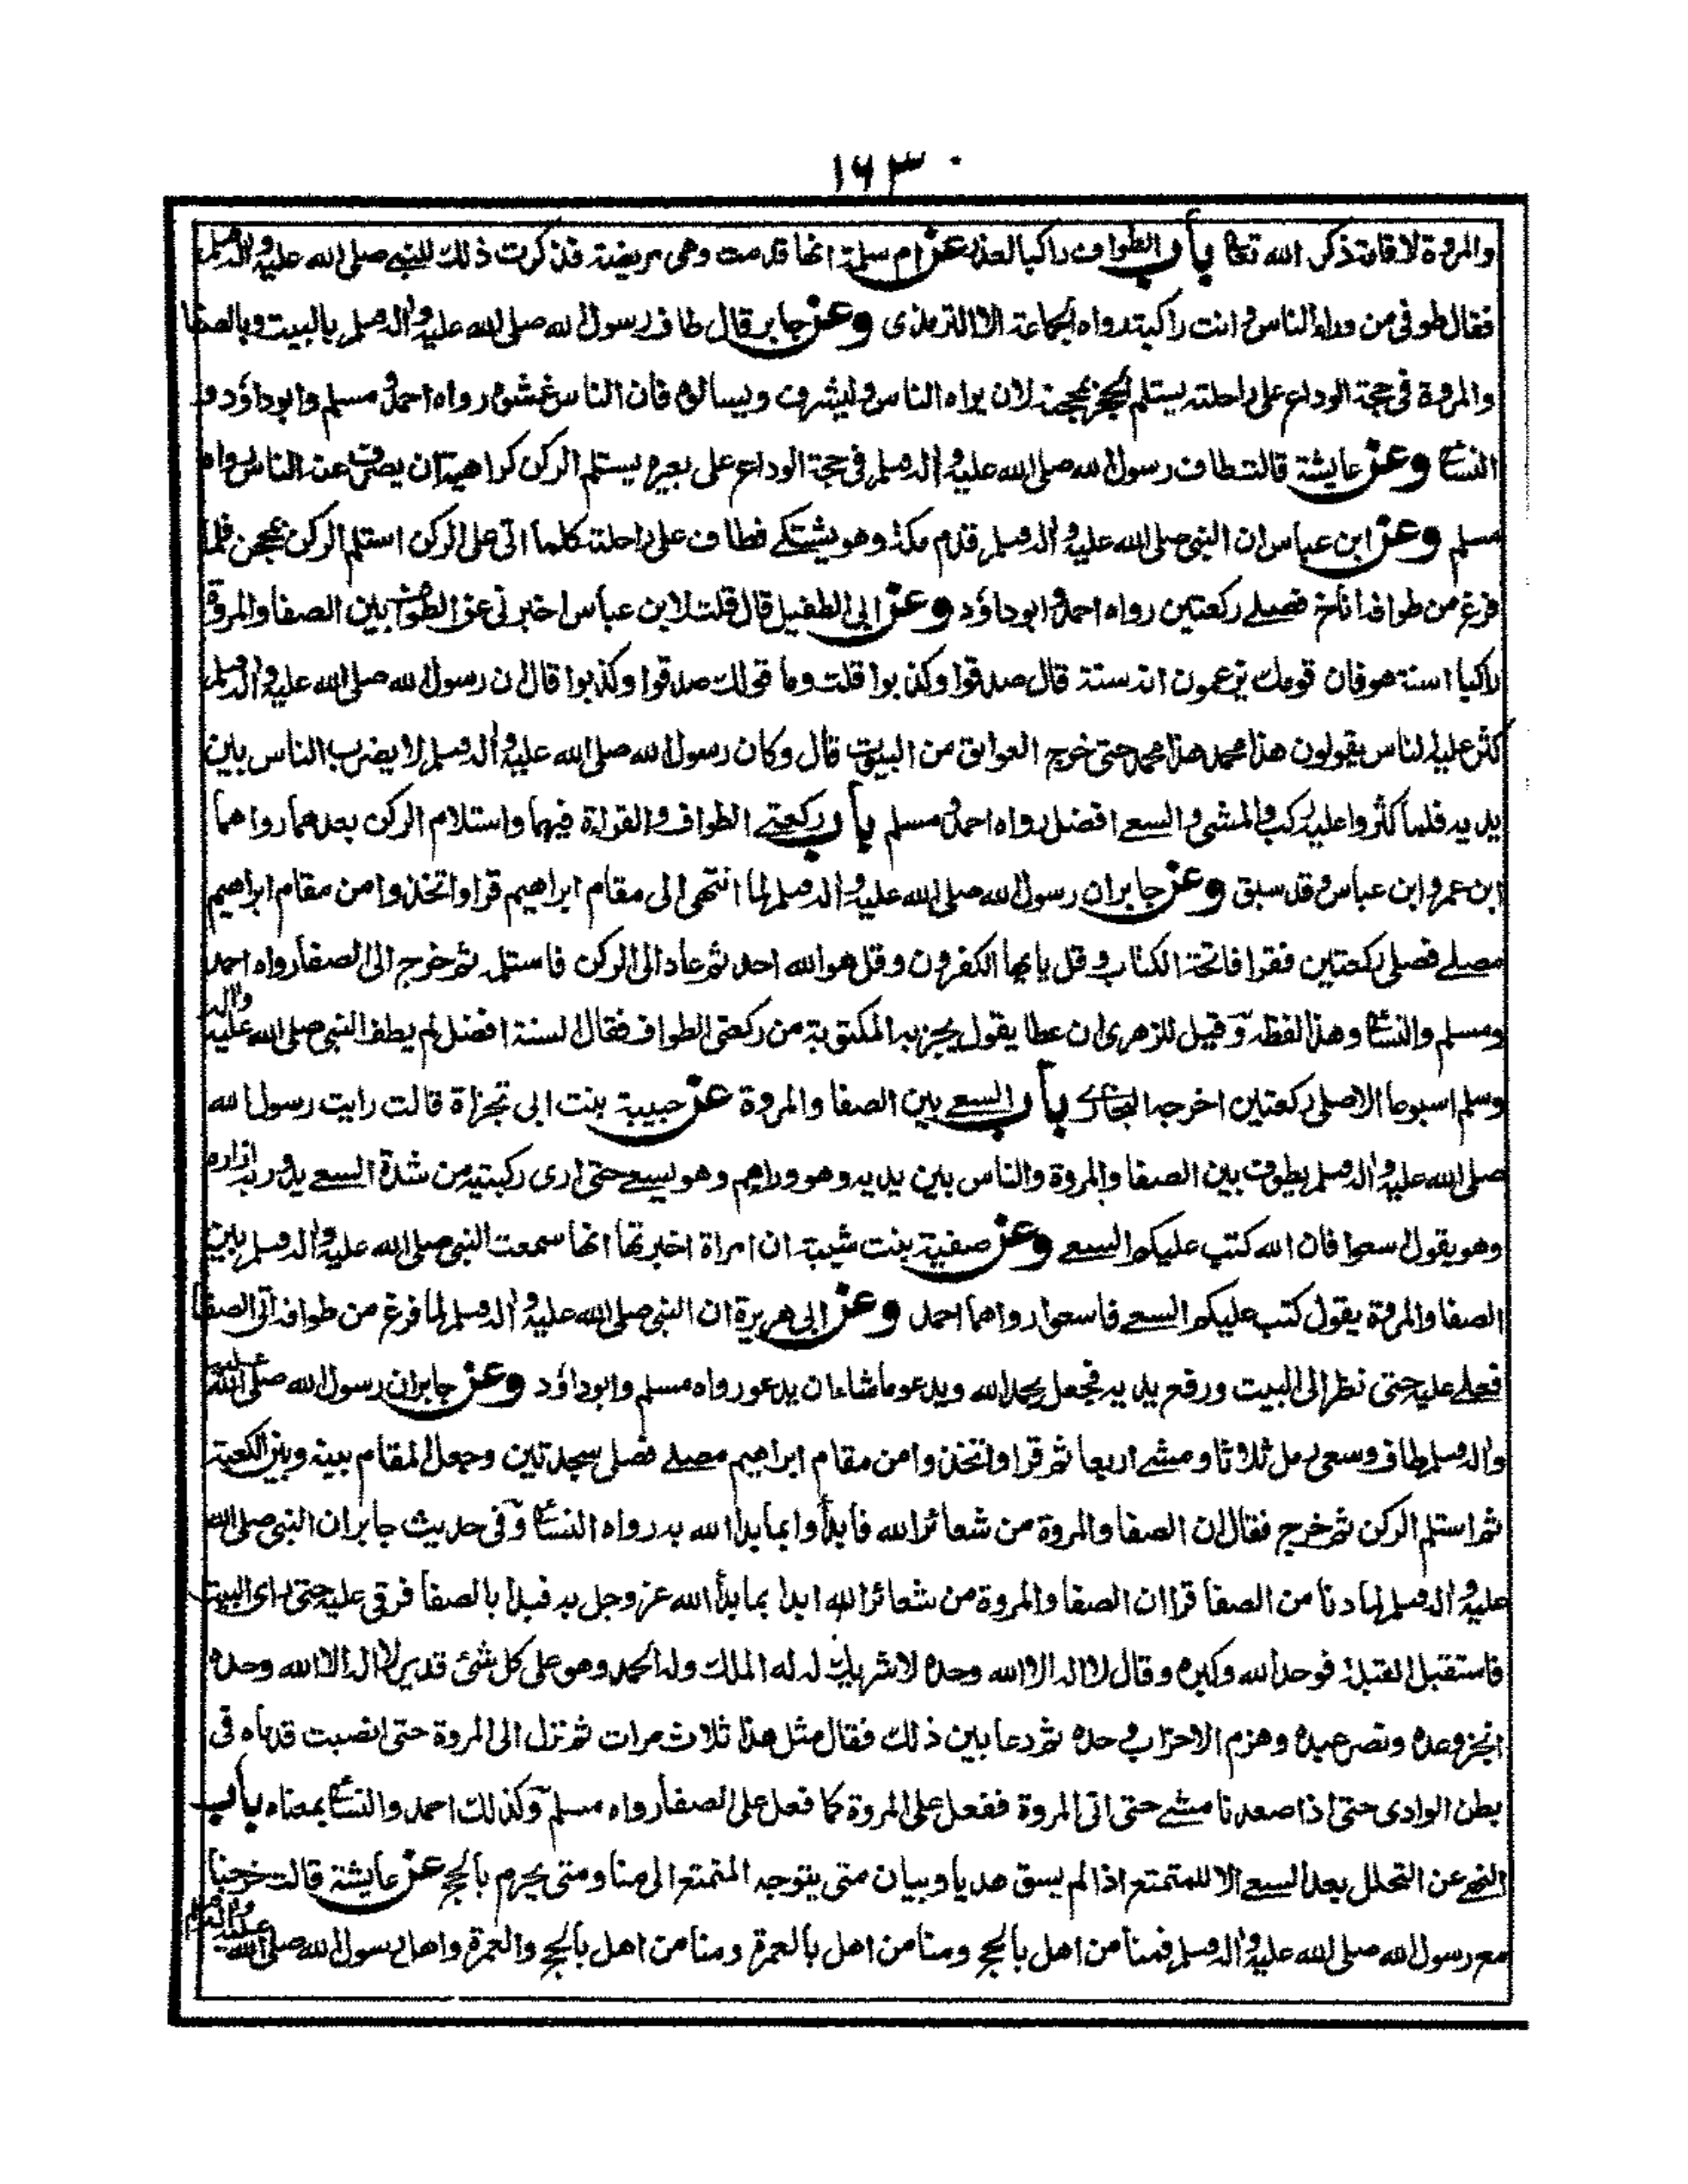 ١٦٣
والمروة لاقامة ذكر الله تعالى باب الطواف راكبا لعذر عن ام سلمة انها قدمت وهى مريضة فذكرت ذلك للنبى صلى الله عليه واله وسلم
فقال طوفى من وراء الناس وانت راكبة رواه الجماعة الا الترمذى وعن جابر قال طاف رسول الله صلى الله عليه واله وسلم بالبيت وبالصفا
والمروة فى حجة الوداع على راحلته يستلم الحجر بمحجنه لان يراه الناس وليشرف ويسالوه فان الناس غشوه رواه احمد ومسلم وابوداؤد و
النسائى وعن عايشة قالت طاف رسول الله صلى الله عليه واله وسلم فى حجة الوداع على بعيره يستلم الركن كراهية ان يصرف عنه الناس رواه
مسلم وعن ابن عباس ان النبى صلى الله عليه واله وسلم قدم مكة وهو يشتكى فطاف على راحلته كلما اتى على الركن استلم الركن بمحجن فلما
فرغ من طوافه اناخ فصلى ركعتين رواه احمد وابوداؤد وعن ابى الطفيل قال قلت لابن عباس اخبرنى عن الطواف بين الصفا والمروة
راكبا اسنة هو فان قومك يزعمون انه سنة قال صدقوا وكذبوا قلت وما قولك صدقوا وكذبوا قال ان رسول الله صلى الله عليه واله وسلم
كثر عليه الناس يقولون هذا محمد هذا محمد حتى خرج العواتق من البيوت قال وكان رسول الله صلى الله عليه واله وسلم لا يضرب الناس بين
يديه فلما كثروا عليه ركب والمشى والسعى افضل رواه احمد ومسلم باب ركعتى الطواف والقراة فيهما واستلام الركن بعدهما رواهما
ابن عمر وابن عباس وقد سبق وعن جابر ان رسول الله صلى الله عليه واله وسلم لما انتهى الى مقام ابراهيم قرا واتخذوا من مقام ابراهيم
مصلى فصلى ركعتين فقرا فاتحة الكتاب وقل يايها الكفرون وقل هو الله احد ثم عاد الى الركن فاستلمه ثم خرج الى الصفا رواه احمد
ومسلم والنسائى وهذا لفظه وقيل للزهرى ان عطا يقول يجزيه المكتوبة من ركعتى الطواف فقال السنة افضل لم يطف النبى صلى الله عليه واله
وسلم اسبوعا الا صلى ركعتين اخرجه البخارى باب السعى بين الصفا والمروة عن حبيبة بنت ابى تجزاة قالت رايت رسول الله
صلى الله عليه واله وسلم يطوف بين الصفا والمروة والناس بين يديه وهو وراءهم وهو يسعى حتى ارى ركبتيه من شدة السعى يدور به ازاره
وهو يقول سعوا فان الله كتب عليكم السعى وعن صفية بنت شيبة ان امراة اخبرتها انها سمعت النبى صلى الله عليه واله وسلم بين
الصفا والمروة يقول كتب عليكم السعى فاسعوا رواهما احمد وعن ابى هريرة ان النبى صلى الله عليه واله وسلم لما فرغ من طوافه اتى الصفا
فعلى عليه حتى نظر الى البيت ورفع يديه فجعل يحمد الله ويدعو ما شاء ان يدعو رواه مسلم وابوداؤد وعن جابر ان رسول الله صلى الله عليه
واله وسلم طاف وسعى رمل ثلاثا ومشى اربعا ثم قرا واتخذوا من مقام ابراهيم مصلى فصلى سجدتين وجعل المقام بينه وبين الكعبة
ثم استلم الركن ثم خرج فقال ان الصفا والمروة من شعائر الله فابدأوا بما بدأ الله به رواه النسائى وفى حديث جابر ان النبى صلى الله
عليه واله وسلم لما دنا من الصفا قرا ان الصفا والمروة من شعائر الله ابدا بما بدأ الله عز وجل به فبدأ بالصفا فرقى عليه حتى راى البيت
فاستقبل القبلة فوحد الله وكبره وقال لا اله الا الله وحده لا شريك له له الملك وله الحمد وهو على كل شئ قدير لا اله الا الله وحده
انجز وعده ونصر عبده وهزم الاحزاب وحده ثم دعا بين ذلك فقال مثل هذا ثلاث مرات ثم نزل الى المروة حتى انصبت قدماه فى
بطن الوادى حتى اذا صعدنا مشى حتى اتى المروة ففعل على المروة كما فعل على الصفا رواه مسلم وكذلك احمد والنسائى بمعناه باب
النهى عن التحلل بعد السعى الا للمتمتع اذا لم يسق هديا وبيان متى يتوجه المتمتع الى منا ومتى يحرم بالحج عن عايشة قالت خرجنا
مع رسول الله صلى الله عليه واله وسلم فمنا من اهل بالحج ومنا من اهل بالعمرة ومنا من اهل بالحج والعمرة واهل رسول الله صلى الله عليه واله وسلم